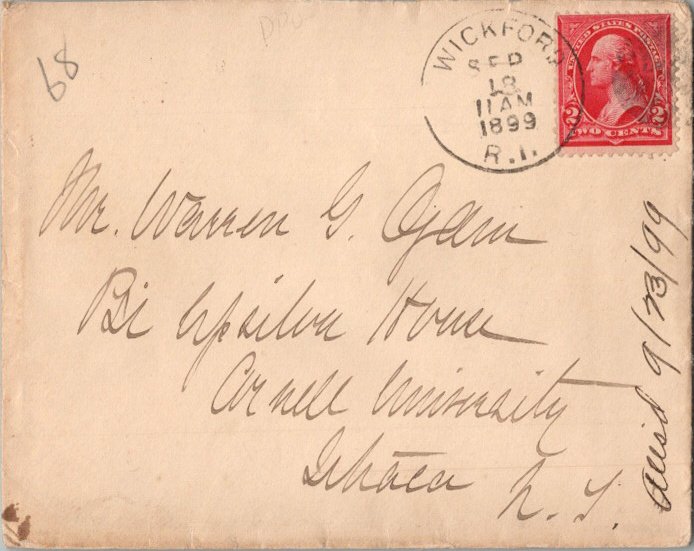 68
WICKFORD
SEP
18
11 AM
1899
R.I.
UNITED STATES POSTAGE
2 2
TWO CENTS
Mr. Warren G. Ogden
Psi Upsilon House
Cornell University
Ithaca
N. Y.
9/23/99